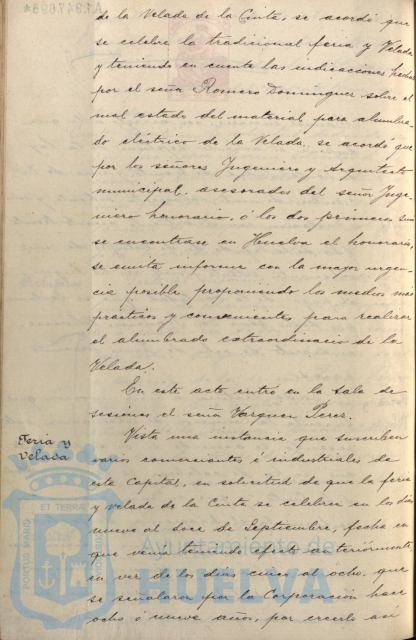 de la Velada de la Cinta, se acordó que
se celebre la tradicional feria y Velada
y teniendo en cuenta las indicaciones hechas
por el señor Romero Dominguez sobre el
mal estado del material para alumbra-
do eléctrico de la Velada, se acordó que
por los señores Ingeniero y Arquitecto
municipal, asesorados del señor Inge-
niero honorario, ó los dos primeros sino
se encontrase en Huelva el honorario,
se emita informe con la mayor urgen-
cia posible proponiendo los medios mas
prácticos y convenientes para realizar
el alumbrado extraordinario de la
Velada.
En este acto entró en la sala de
sesiones el señor Vazquez Perez.
Feria y
Velada
Vista una instancia que suscriben
varios comerciantes é industriales de
esta Capital, en solicitud de que la feria
y velada de la Cinta se celebren en los dias
nueve al doce de Septiembre, fecha en
que venia teniendo efecto anteriormente
en vez de los dias cinco al ocho, que
se señalaron por la Corporación hace
ocho ó nueve años, por creerlo asi
Ayuntamiento de
HUELVA
PORTUS MARIS
ET TERRAE